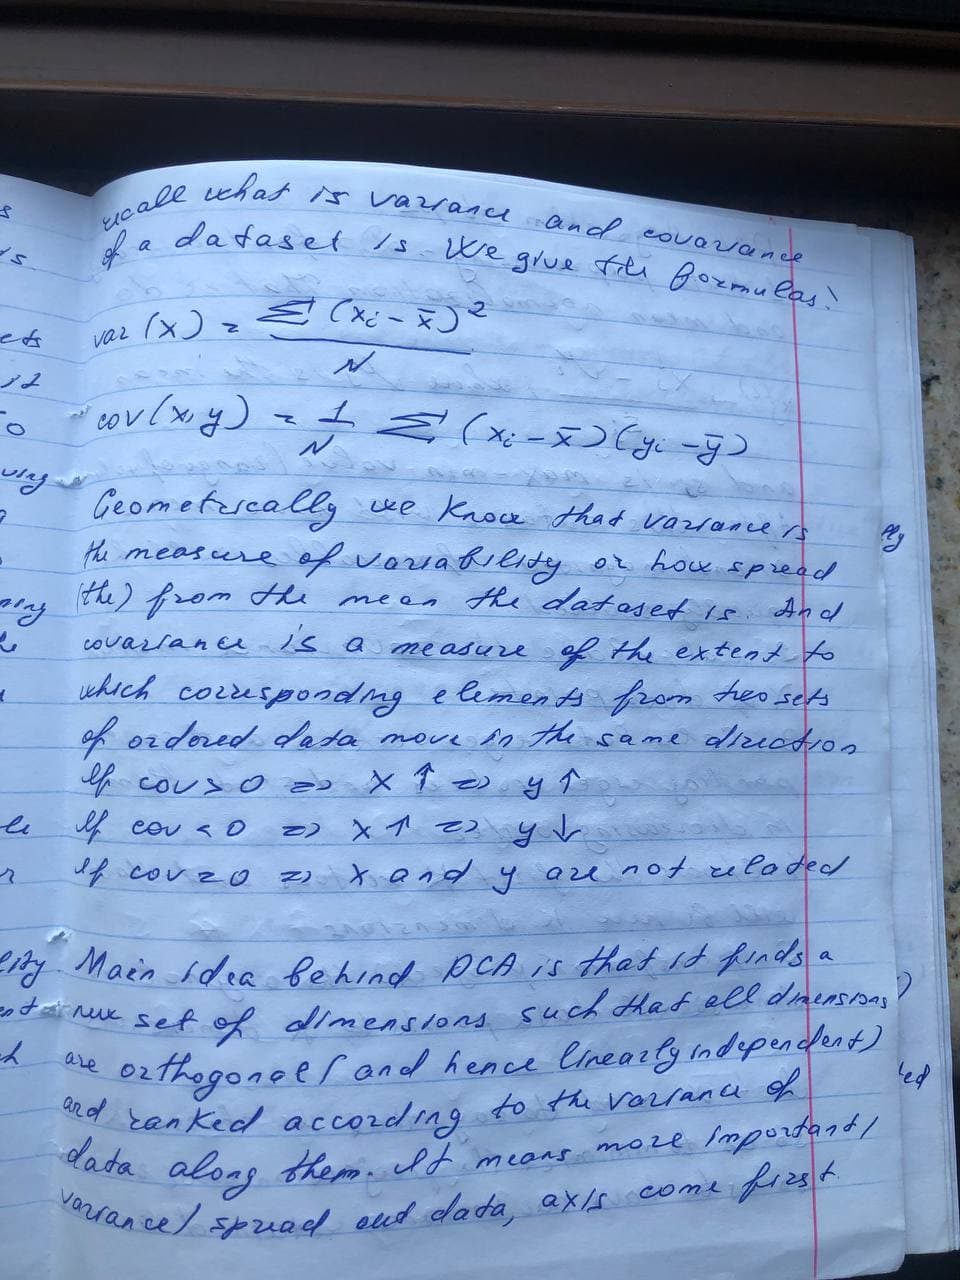 recall what is variance and covariance
of a dataset is. We give the formulas:
var (x) = Σ (xᵢ - x̄)²
N
cov (x, y) = 1/N Σ (xᵢ - x̄)(yᵢ - ȳ)
Geometrically we know that variance is
the measure of variability or how spread
(the) from the mean the dataset is. And
covariance is a measure of the extent to
which corresponding elements from two sets
of ordered data move in the same direction
If cov > 0 => x ↑ => y ↑
If cov < 0 => x ↑ => y ↓
If cov = 0 => x and y are not related
Main idea behind PCA is that it finds a
new set of dimensions such that all dimensions
are orthogonal (and hence linearly independent)
and ranked according to the variance of
data along them. It means more important/
variance/ spread out data, axis come first.